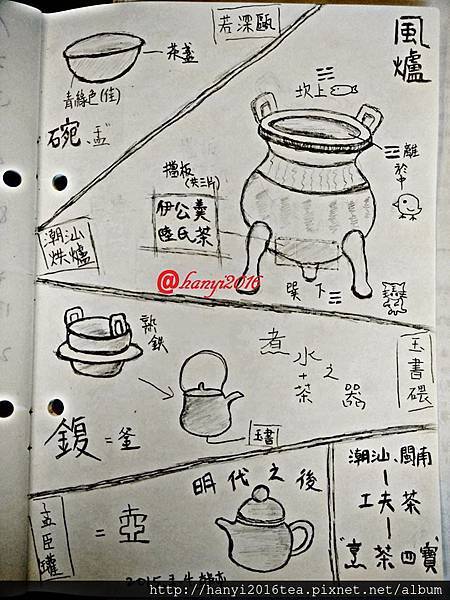 風爐
若深甌
茶盞
青綠色(佳)
碗、盂
坎上☵
☲離於中
擋板
(共三片)
伊公羹
陸氏茶
巽下☴
潮汕
烘爐
@hanyi2016
熟鉄
鍑=釜
玉書
煮水+茶之器
玉書碨
孟臣罐
=壺
明代之後
潮汕、閩南
工夫茶
"烹茶四寶"
http://hanyi2016tea.pixnet.net/album